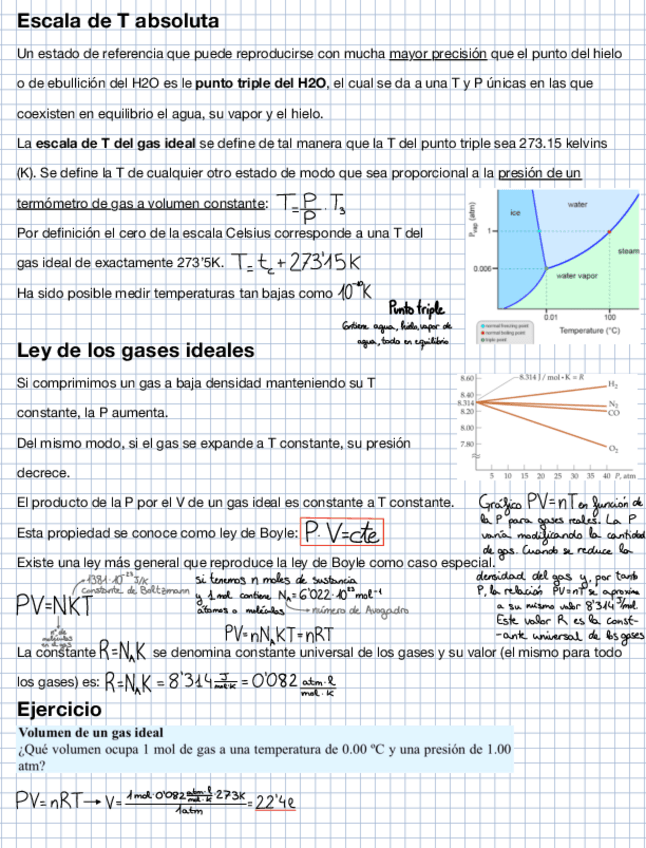 Escala de T absoluta
Un estado de referencia que puede reproducirse con mucha mayor precisión que el punto del hielo
o de ebullición del H2O es le punto triple del H2O, el cual se da a una T y P únicas en las que
coexisten en equilibrio el agua, su vapor y el hielo.
La escala de T del gas ideal se define de tal manera que la T del punto triple sea 273.15 kelvins
(K). Se define la T de cualquier otro estado de modo que sea proporcional a la presión de un
termómetro de gas a volumen constante: T=P/P · T₃
Por definición el cero de la escala Celsius corresponde a una T del
gas ideal de exactamente 273'5K. T = t_c + 273'15K
Ha sido posible medir temperaturas tan bajas como 10⁻¹⁰K
P_vap (atm)
ice
water
1
steam
0.006
water vapor
0.01
100
Temperature (°C)
normal freezing point
normal boiling point
triple point
Punto triple
Contiene agua, hielo, vapor de
agua, todo en equilibrio
Ley de los gases ideales
Si comprimimos un gas a baja densidad manteniendo su T
constante, la P aumenta.
Del mismo modo, si el gas se expande a T constante, su presión
decrece.
El producto de la P por el V de un gas ideal es constante a T constante.
Esta propiedad se conoce como ley de Boyle: P·V=cte
Existe una ley más general que reproduce la ley de Boyle como caso especial.
8.60
8.314 J / mol·K = R
H₂
8.40
8.314
N₂
8.20
CO
8.00
7.80
O₂
5 10 15 20 25 30 35 40 P, atm
Gráfico PV=nT en función de
la P para gases reales. La P
varía modificando la cantidad
de gas. Cuando se reduce la
densidad del gas y, por tanto
P, la relación PV=nT se aproxima
a su mismo valor 8'314 J/mol.
Este valor R es la const-
-ante universal de los gases
1'381·10⁻²³ J/K
constante de Boltzmann
PV=NKT
nº de
moléculas
en el gas
si tenemos n moles de sustancia
y 1 mol contiene N_A = 6'022·10²³ mol⁻¹
átomos o moléculas
número de Avogadro
PV=nN_AKT=nRT
La constante R=N_AK se denomina constante universal de los gases y su valor (el mismo para todo
los gases) es: R=N_AK = 8'314 J/mol·K = 0'082 atm·l/mol·K
Ejercicio
Volumen de un gas ideal
¿Qué volumen ocupa 1 mol de gas a una temperatura de 0.00 ºC y una presión de 1.00
atm?
PV=nRT → V= 1mol·0'082 atm·l/mol·K ·273K / 1atm = 22'4l